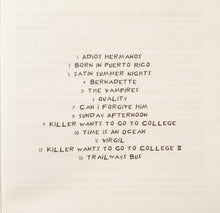 1 ADIOS HERMANOS
2 BORN IN PUERTO RICO
3 SATIN SUMMER NIGHTS
4 BERNADETTE
5 THE VAMPIRES
6 QUALITY
7 CAN I FORGIVE HIM
8 SUNDAY AFTERNOON
9 KILLER WANTS TO GO TO COLLEGE
10 TIME IS AN OCEAN
11 VIRGIL
12 KILLER WANTS TO GO TO COLLEGE II
13 TRAILWAYS BUS